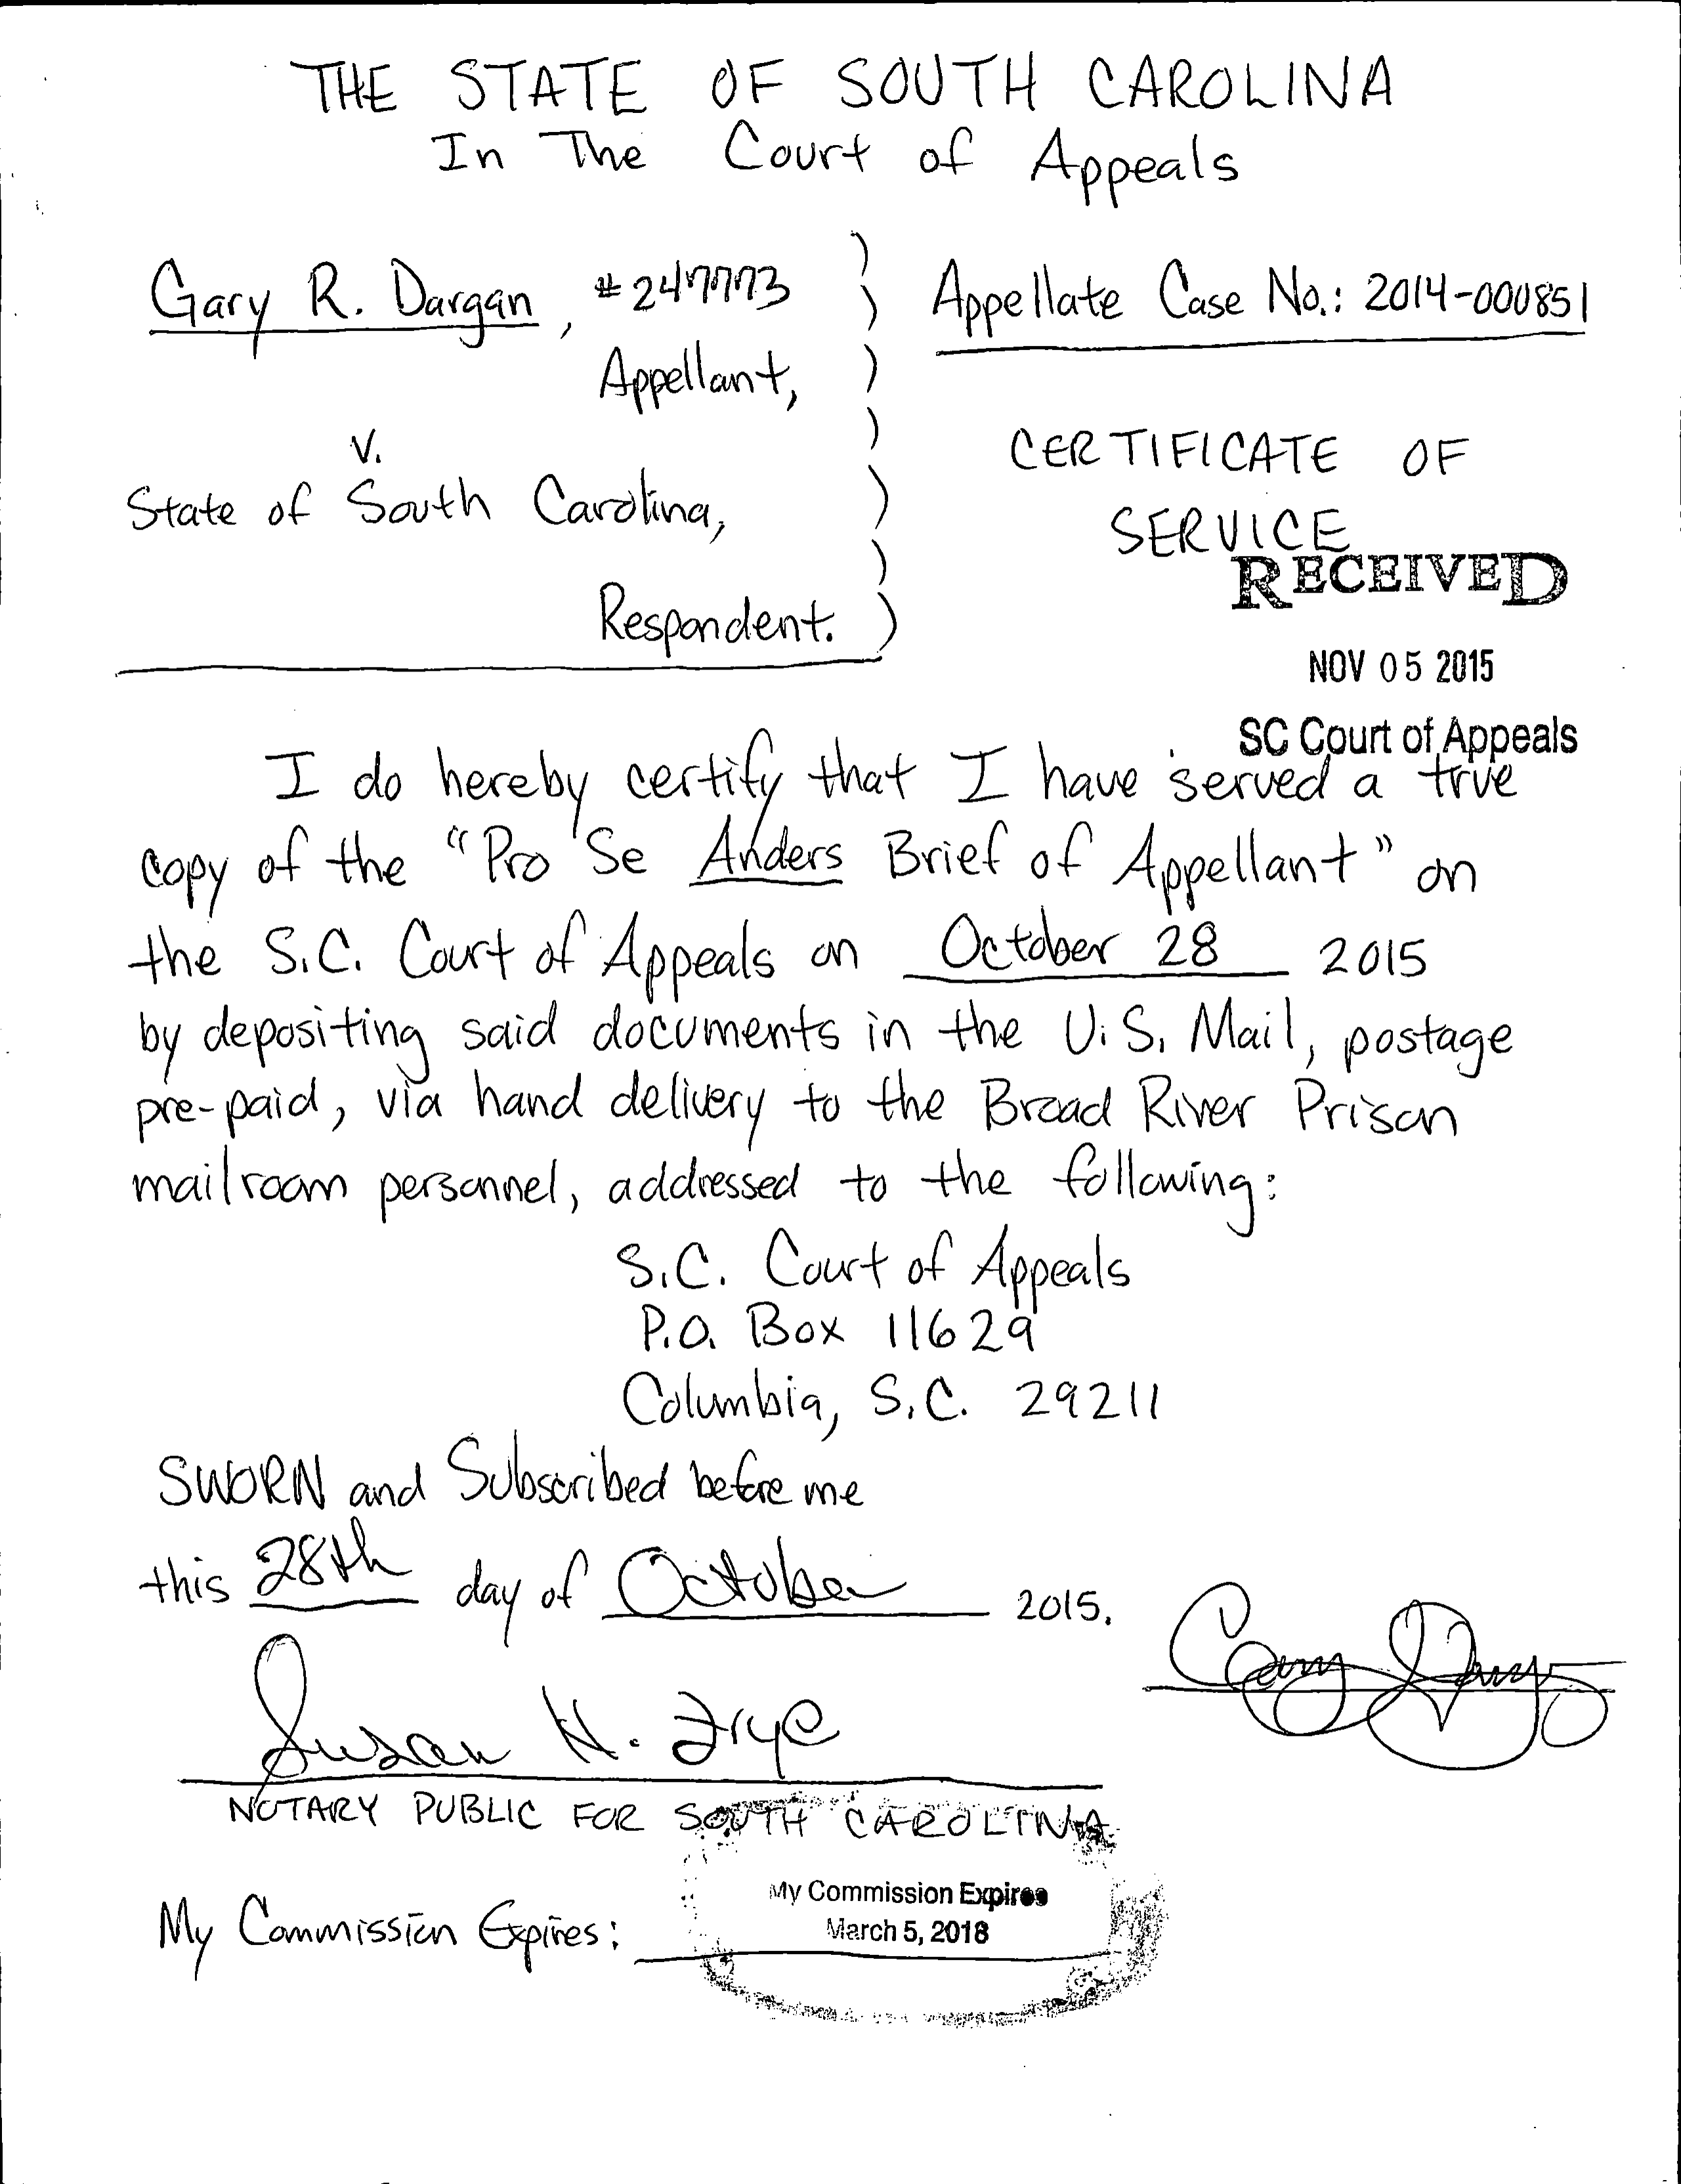 THE STATE OF SOUTH CAROLINA
In The Court of Appeals
Gary R. Dargan, #247773
Appellant,
v.
State of South Carolina,
Respondent.
)
)
)
)
)
)
)
Appellate Case No.: 2014-000851
CERTIFICATE OF
SERVICE
RECEIVED
NOV 05 2015
SC Court of Appeals
I do hereby certify that I have served a true
copy of the "Pro Se Anders Brief of Appellant" on
the S.C. Court of Appeals on October 28 2015
by depositing said documents in the U.S. Mail, postage
pre-paid, via hand delivery to the Broad River Prison
mailroom personnel, addressed to the following:
S.C. Court of Appeals
P.O. Box 11629
Columbia, S.C. 29211
SWORN and Subscribed before me
this 28th day of October 2015.
Susan H. Frye
NOTARY PUBLIC FOR SOUTH CAROLINA
My Commission Expires:
My Commission Expires
March 5, 2018